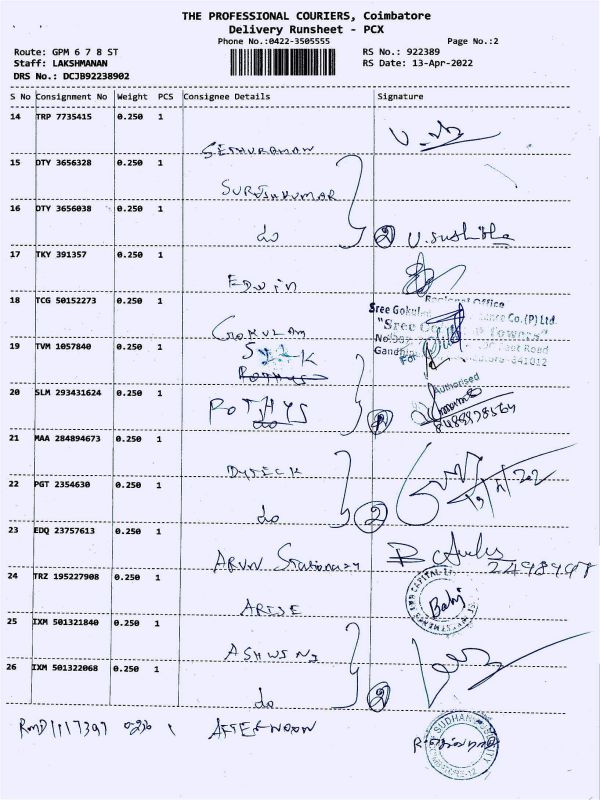 THE PROFESSIONAL COURIERS, Coimbatore
Delivery Runsheet - PCX
Phone No.:0422-3505555
Page No.:2
Route: GPM 6 7 8 ST
RS No.: 922389
Staff: LAKSHMANAN
RS Date: 13-Apr-2022
DRS No.: DCJB92238902
S No Consignment No Weight PCS Consignee Details Signature
14 TRP 7735415 0.250 1
SETHURAMAN
15 DTY 3656328 0.250 1
SURESHKUMAR
16 DTY 3656038 0.250 1
do 2 U.Sushitha
17 TKY 391357 0.250 1
EDWIN
Regional Office
18 TCG 50152273 0.250 1
Sree Gokulam Co.(P) Ltd.
"Sree Towers"
GOKULAM
East Road
19 TVM 1057840 0.250 1
641012
SILK
Authorised
20 SLM 293431624 0.250 1
POTHYS
do 2
21 MAA 284894673 0.250 1
DYTECK
22 PGT 2354630 0.250 1
do 2
23 EDQ 23757613 0.250 1
ARUN Stationary
24 TRZ 195227908 0.250 1
CAPITAL
Babi
ARISE
25 IXM 501321840 0.250 1
ASHWINI
26 IXM 501322068 0.250 1
do 2
RMD 1117397 0.250 1 AFTERNOON